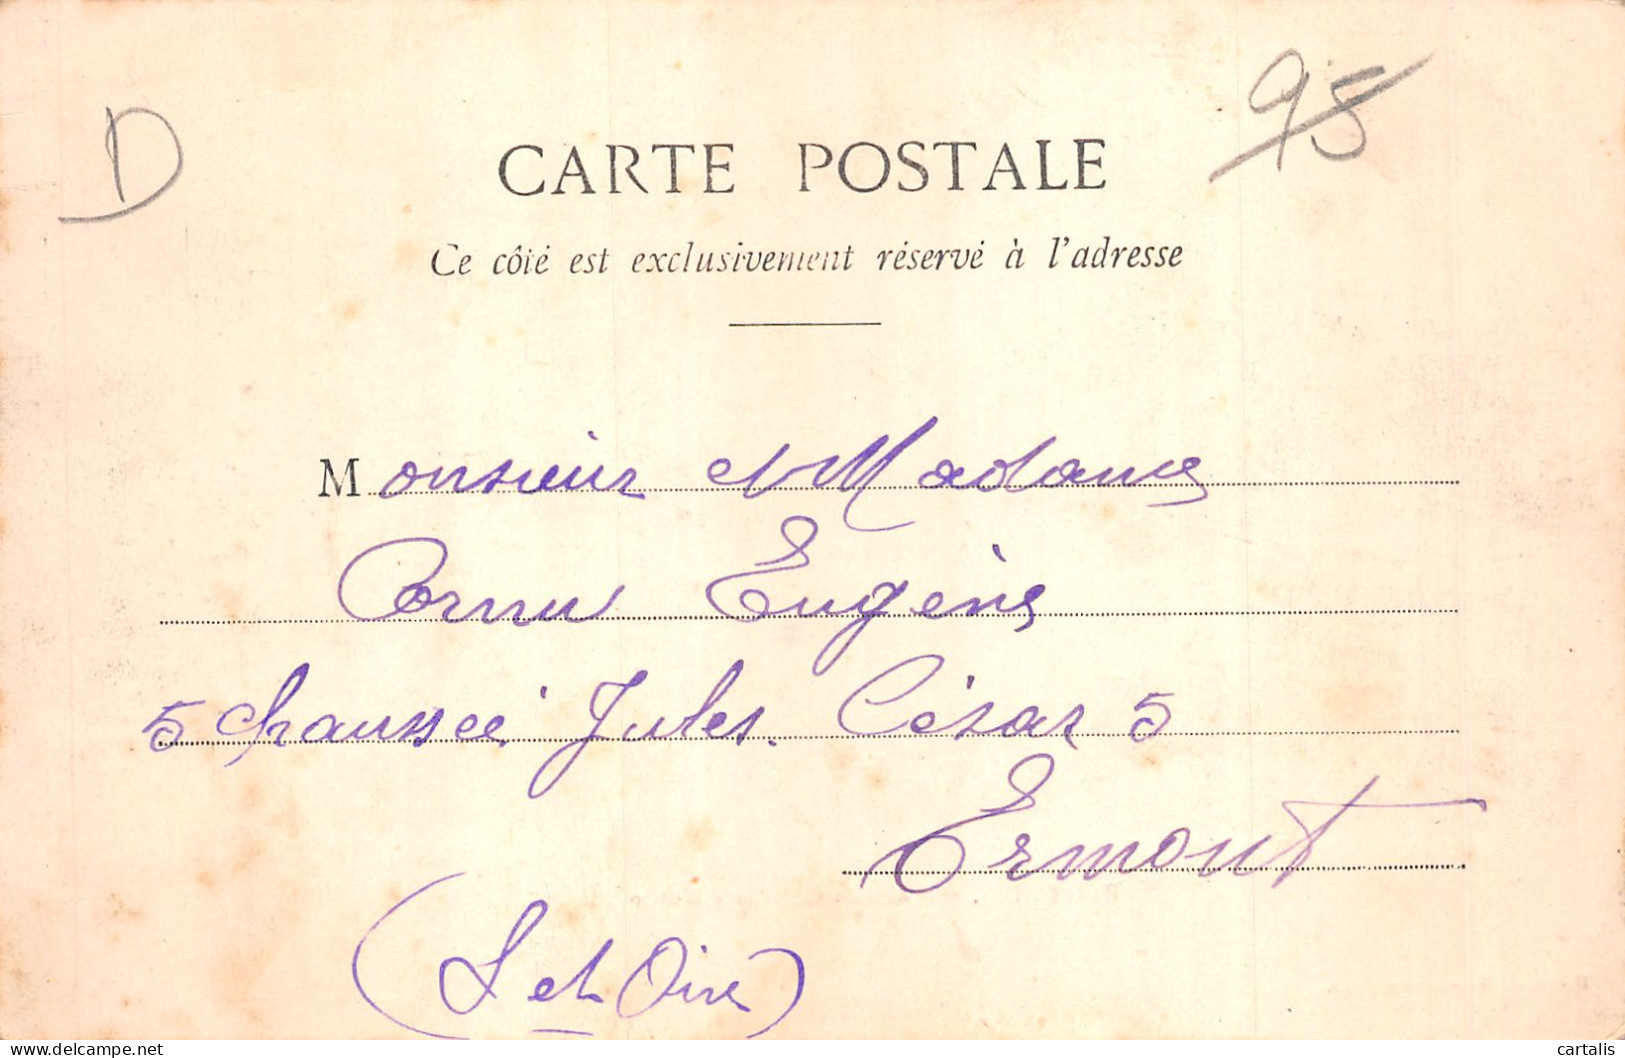 D
95
CARTE POSTALE
Ce côté est exclusivement réservé à l'adresse
Monsieur et Madame
Cornu Eugène
5 chaussée Jules César 5
Ermont
(S et Oise)
delcampe.net
cartalis